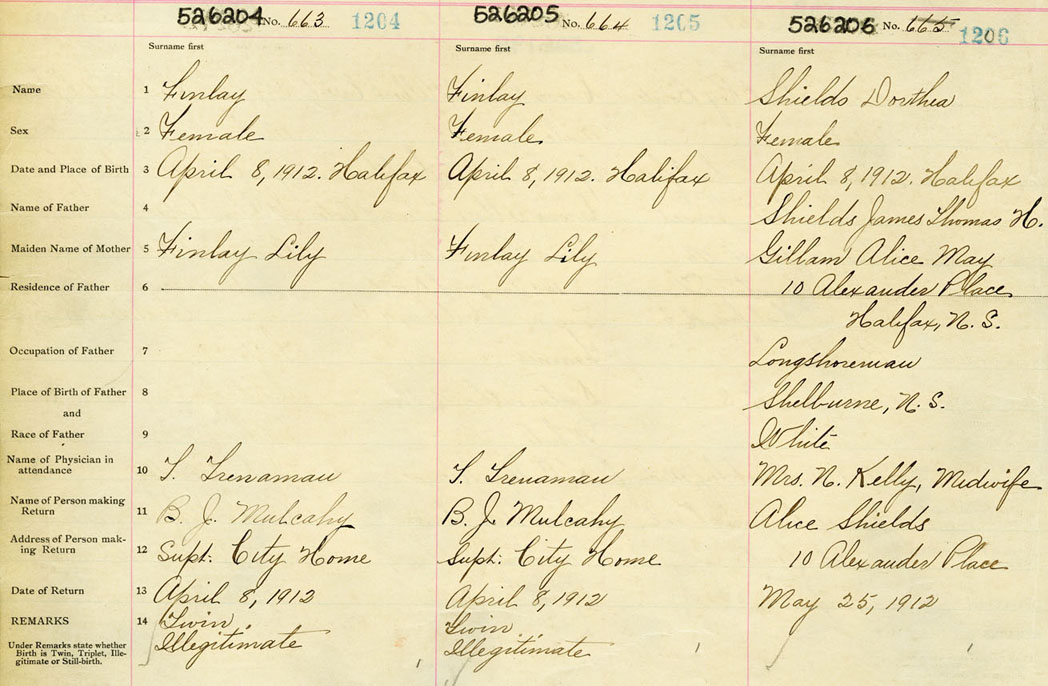 526204 No. 663 1204 526205 No. 664 1205 526206 No. 665 1206
Surname first Surname first Surname first
Name 1 Finlay Finlay Shields Dorthea
Sex 2 Female Female Female
Date and Place of Birth 3 April 8, 1912. Halifax April 8, 1912. Halifax April 8, 1912. Halifax
Name of Father 4 Shields James Thomas H.
Maiden Name of Mother 5 Finlay Lily Finlay Lily Gillam Alice May
Residence of Father 6 10 Alexander Place
Halifax, N. S.
Occupation of Father 7 Longshoreman
Place of Birth of Father 8 Shelburne, N. S.
and
Race of Father 9 White
Name of Physician in
attendance 10 T. Trenaman T. Trenaman Mrs. N. Kelly, Midwife
Name of Person making
Return 11 B. J. Mulcahy B. J. Mulcahy Alice Shields
Address of Person mak-
ing Return 12 Supt. City Home Supt. City Home 10 Alexander Place
Date of Return 13 April 8, 1912 April 8, 1912 May 25, 1912
REMARKS 14 Twin, Twin,
Under Remarks state whether Illegitimate Illegitimate
Birth is Twin, Triplet, Ille-
gitimate or Still-birth.